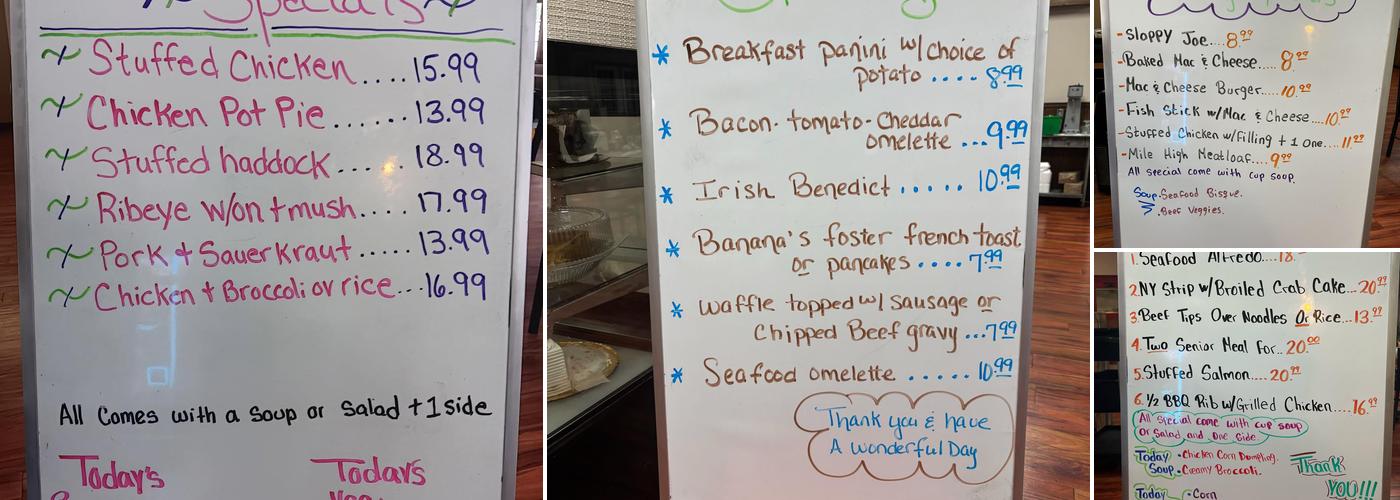 Specials
Stuffed Chicken....15.99
Chicken Pot Pie......13.99
Stuffed haddock.....18.99
Ribeye w/on + mush....17.99
Pork + Sauerkraut.....13.99
Chicken + Broccoli ov rice...16.99
All Comes with a soup or salad + 1 side
Today's Today's
* Breakfast panini w/choice of
potato .... 8.99
* Bacon-tomato-cheddar
omelette ...9.99
* Irish Benedict ..... 10.99
* Banana's foster french toast
or pancakes ....7.99
* Waffle topped w/ sausage or
Chipped Beef gravy...7.99
* Seafood omelette ..... 10.99
Thank you & have
A wonderful Day
-Sloppy Joe....8.99
-Baked Mac & Cheese..... 8.99
-Mac & Cheese Burger......10.99
-Fish Stick w/Mac & Cheese...10.99
-Stuffed Chicken w/Filling + 1 one....11.99
-Mile High Meatloaf....9.99
All special come with cup soup.
Soup.Seafood Bisque.
.Beef Veggies.
1. Seafood Alfredo....18.
2.NY Strip w/Broiled Crab Cake...20.99
3.Beef Tips Over Noodles Or Rice...13.99
4.Two Senior Meal For..20.00
5.Stuffed Salmon....20.99
6. 1/2 BBQ Rib w/Grilled Chicken....16.99
All special come with cup soup
Or Salad and One Side
Today •Chicken Corn Dumpling.
Soup •Creamy Broccoli.
Thank
YOU!!!
Today •Corn